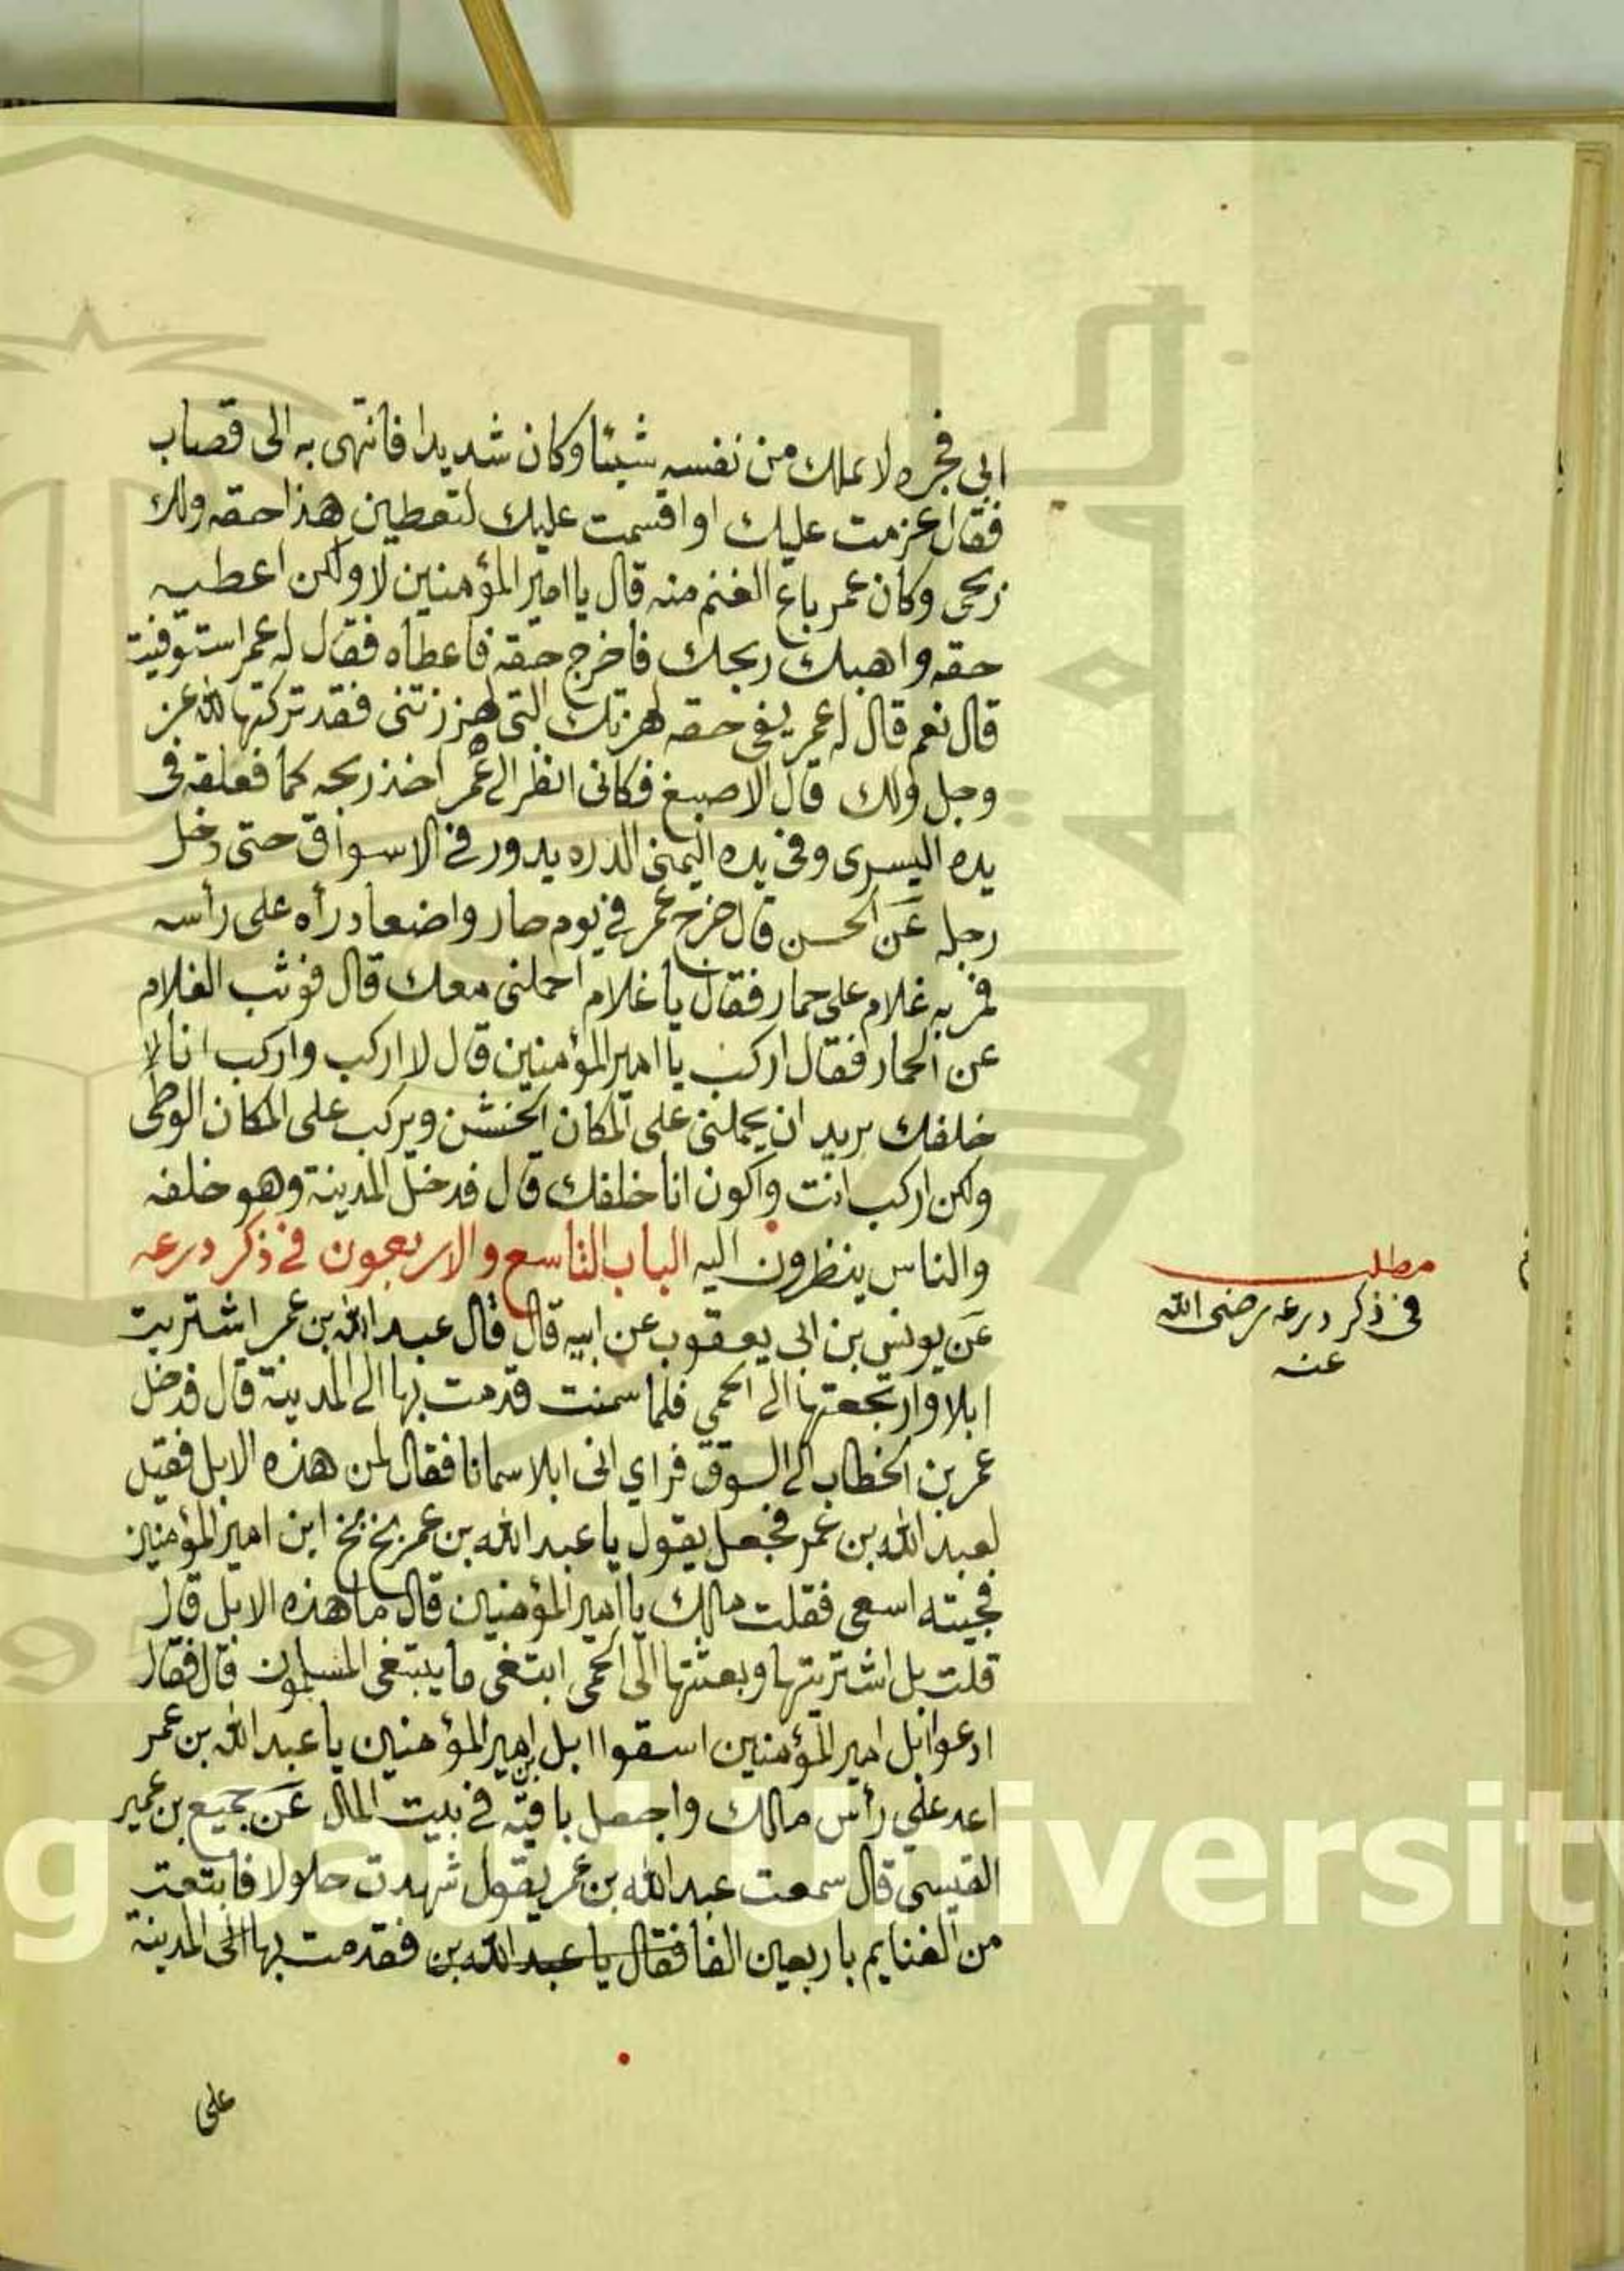 ابي فجره لا يملك من نفسه شيئا وكان شديدا فانتهى به الى قصاب
فقال عزمت عليك او اقسمت عليك لتعطين هذا حقه ولك
ربحى وكان عمر باع الغنم منه قال يا امير المؤمنين لا ولكن اعطيه
حقه واهبك ربحك فاخرج حقه فاعطاه فقال له عمر استوفيت
قال نعم قال له عمر بقى حقه لهزتك التى لهزتنى فقد تركتها لله عز
وجل ولك قال الاصبغ فكانى انظر الى عمر اخذ ربحه لحما فعلقه فى
يده اليسرى وفى يده اليمنى الدره يدور فى الاسواق حتى دخل
رحله عن الحسن قال خرج عمر فى يوم حار واضعا رداه على رأسه
فمر به غلام على حمار فقال يا غلام احملنى معك قال فوثب الغلام
عن الحمار فقال اركب يا امير المؤمنين قال لا اركب واركب انا لا
خلفك يريد ان يحملنى على المكان الخشن ويركب على المكان الوطى
ولكن اركب انت واكون انا خلفك قال فدخل المدينة وهو خلفه
والناس ينظرون اليه الباب التاسع والاربعون فى ذكر درعه
عن يونس بن ابى يعقوب عن ابيه قال قال عبد الله بن عمر اشتريت
ابلا وارتجعتها الى الحمى فلما سمنت قدمت بها الى المدينة قال فدخل
عمر بن الخطاب الى السوق فراي انى ابلا سمانا فقال لمن هذه الابل فقيل
لعبد الله بن عمر فجعل يقول يا عبد الله بن عمر بخ بخ ابن امير المؤمنين
فجيته اسعى فقلت مالك يا امير المؤمنين قال ما هذه الابل قال
قلت بل اشتريتها وبعثتها الى الحمى ابتغى ما يبتغى المسلمون قال فقال
ادعوا ابل امير المؤمنين اسقوا ابل بن امير المؤمنين يا عبد الله بن عمر
اعد على رأس مالك واجعل باقيه فى بيت المال عن جميع بن عمير
القيسى قال سمعت عبد الله بن عمر يقول شهدت جلولا فابتعت
من الغنايم باربعين الفا فقال يا عبد الله بن فقدمت بها الى المدينة
على
مطلب
فى ذكر درعه رضى الله
عنه